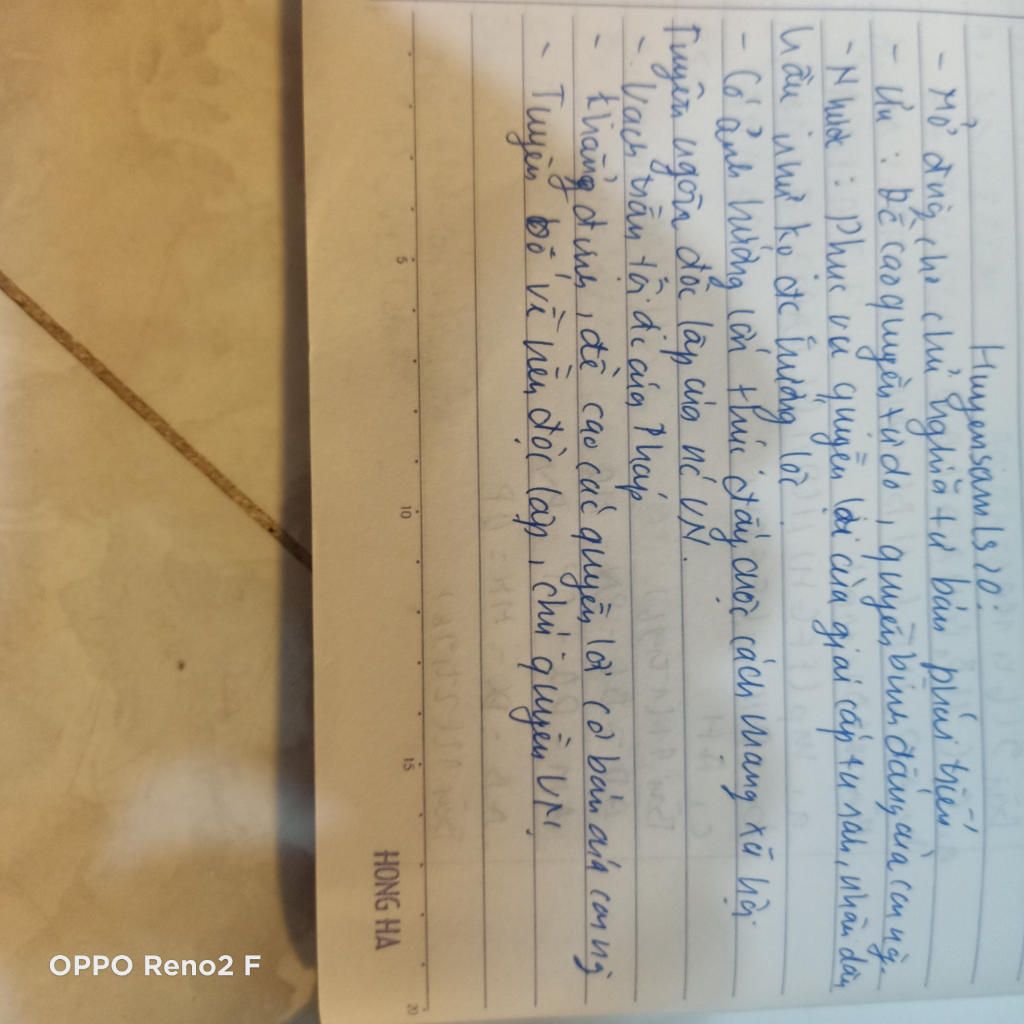 Huyensamls20:
- Mở đường cho chủ nghĩa tư bản phát triển
- Ưu : Đề cao quyền tự do, quyền bình đẳng của con ng.
- Nhược : Phục vụ quyền lợi của giai cấp tư sản, nhân dân
hầu như ko đc hưởng lợi
- Có ảnh hưởng lớn thúc đẩy cuộc cách mạng xã hội
Tuyên ngôn độc lập của nc VN.
- Vạch trần tội ác của Pháp
- Khẳng định, đề cao các quyền lợi cơ bản của con ng
- Tuyên bố về nền độc lập, chủ quyền VN.
5 10 15 20
HONG HA
OPPO Reno2 F